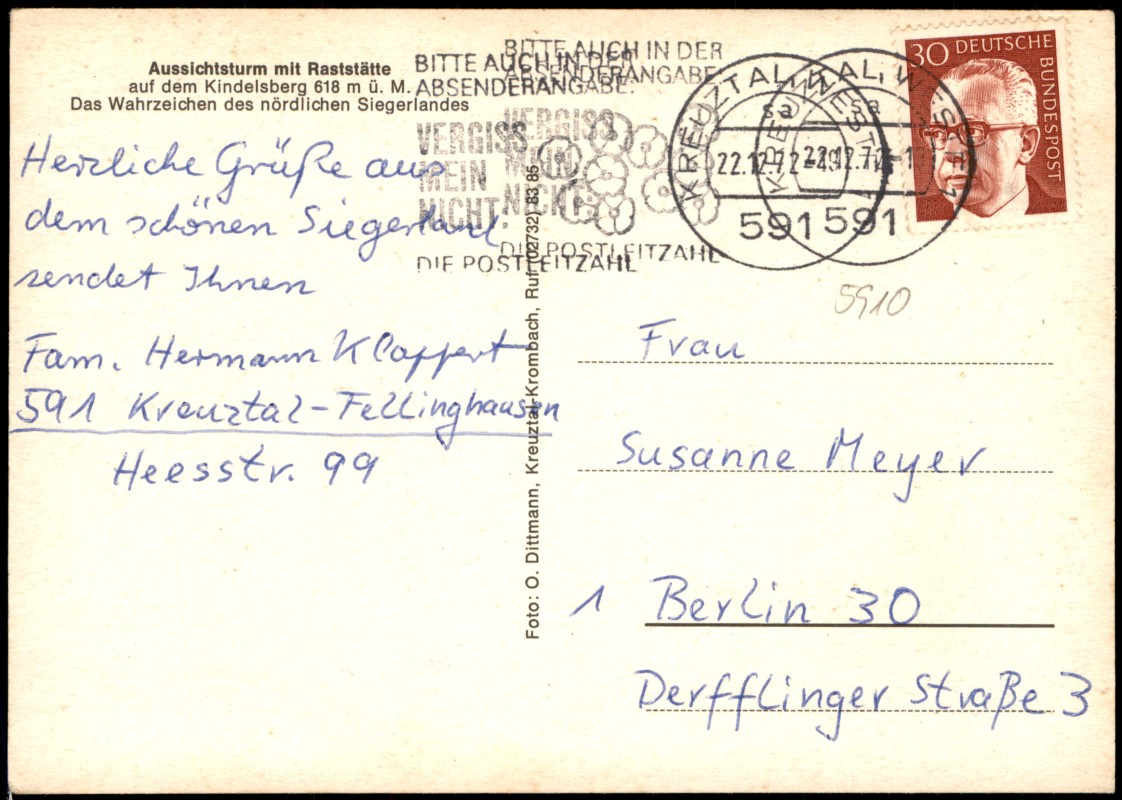 Aussichtsturm mit Raststätte
auf dem Kindelsberg 618 m ü. M.
Das Wahrzeichen des nördlichen Siegerlandes
Herzliche Grüße aus
dem schönen Siegerland
sendet Ihnen
Fam. Hermann Klappert
591 Kreuztal-Fellinghausen
Heesstr. 99
Foto: O. Dittmann, Kreuztal-Krombach, Ruf (02732) 83 85
BITTE AUCH IN DER
ABSENDERANGABE:
VERGISS
MEIN
NICHT!
DIE POSTLEITZAHL
BITTE AUCH IN DER
ABSENDERANGABE
VERGISS
MEIN
NICHT
DIE POSTLEITZAHL
KREUZTAL, WESTF
sa
22.12.72
591
KREUZTAL, WESTF
sa
22.12.72
591
30 DEUTSCHE
BUNDESPOST
5910
Frau
Susanne Meyer
1 Berlin 30
Derfflinger Straße 3